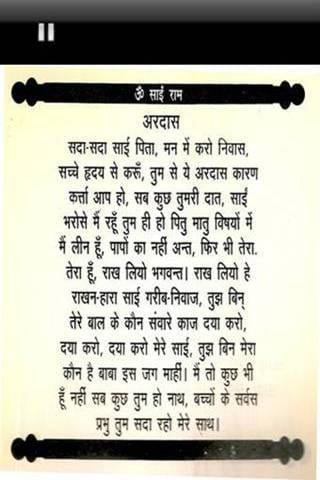 ॐ साईं राम
अरदास
सदा-सदा साई पिता, मन में करो निवास,
सच्चे हृदय से करूँ, तुम से ये अरदास कारण
कर्त्ता आप हो, सब कुछ तुमरी दात, साईं
भरोसे मैं रहूँ तुम ही हो पितु मातु विषयों में
मैं लीन हूँ, पापों का नहीं अन्त, फिर भी तेरा.
तेरा हूँ, राख लियो भगवन्त। राख लियो हे
राखन-हारा साई गरीब-निवाज, तुझ बिन
तेरे बाल के कौन संवारे काज दया करो,
दया करो, दया करो मेरे साई, तुझ बिन मेरा
कौन है बाबा इस जग माहीं। मैं तो कुछ भी
हूँ नहीं सब कुछ तुम हो नाथ, बच्चों के सर्वस
प्रभु तुम सदा रहो मेरे साथ।